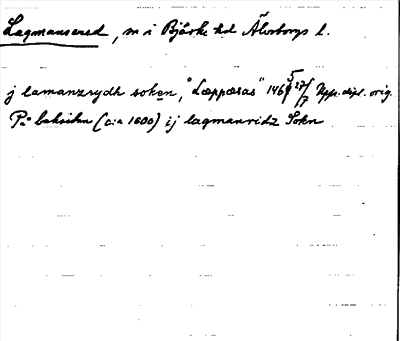 Lagmansered, sn i Bjärke hd Älvsborgs l.
j lamanzrydh soken, "Læppæsas" 146 5 27/7 Upps. dipl. orig.
På baksidan (c:a 1600) ij lagmanridz Sokn